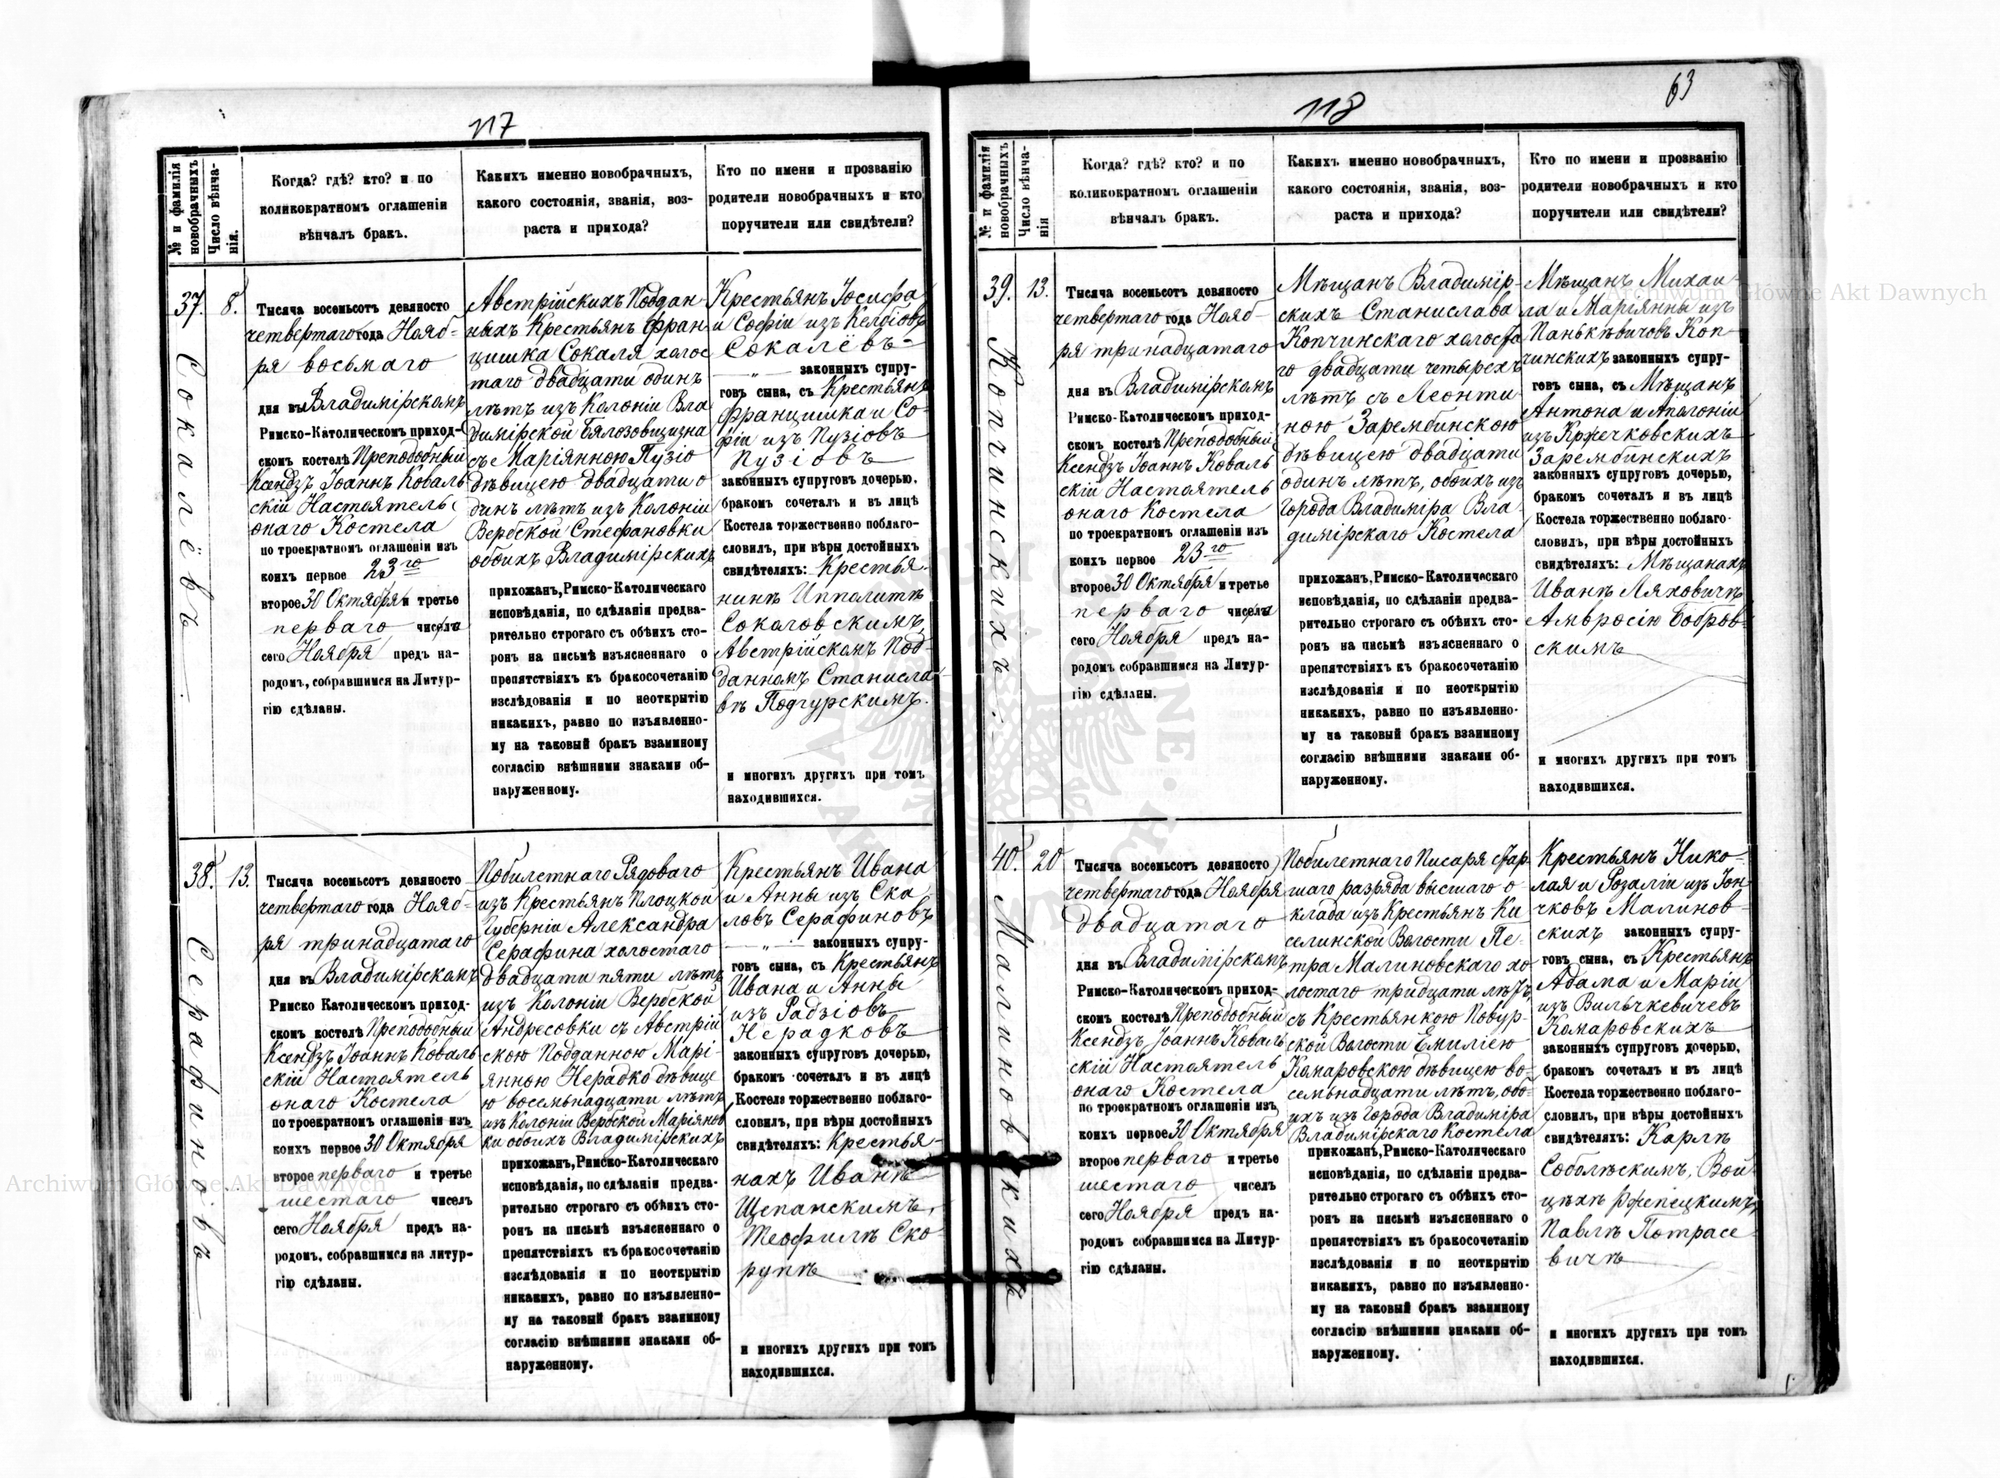 117
№ и фамилія новобрачныхъ
Число вѣнча-
нія.
Когда? гдѣ? кто? и по
коликократномъ оглашеніи
вѣнчалъ бракъ.
Какихъ именно новобрачныхъ,
какого состоянія, званія, воз-
раста и прихода?
Кто по имени и прозванію
родители новобрачныхъ и кто
поручители или свидѣтели?
37.
Сокалёвъ
8.
Тысяча восемьсотъ девяносто
четвертаго года Нояб-
ря восьмаго
дня въ Владимірскомъ
Римско-Католическомъ приход-
скомъ костелѣ Преподобный
Ксендзъ Іоаннъ Коваль
скій Настоятель
онаго Костела
по троекратномъ оглашеніи изъ
коихъ первое 23го
второе 30 Октября и третье
перваго чиселъ
сего Ноября предъ на-
родомъ, собравшимся на Литур-
гію сдѣланы.
Австрійскихъ Поддан
ныхъ Крестьянъ Фран
цишка Сокаля холос
таго двадцати одинъ
лѣтъ изъ Колоніи Вла
димірской Бялозовщизна
съ Маріянною Пузіо
дѣвицею двадцати о
динъ лѣтъ изъ Колоніи
Вербской Стефановки
обоихъ Владимірскихъ
прихожанъ, Римско-Католическаго
исповѣданія, по сдѣланіи предва-
рительно строгаго съ обѣихъ сто-
ронъ на письмѣ изъясненнаго о
препятствіяхъ къ бракосочетанію
изслѣдованія и по неоткрытію
никакихъ, равно по изъявленно-
му на таковый бракъ взаимному
согласію внѣшними знаками об-
наруженному.
Крестьянъ Іосифа
и Софіи изъ Келбіовъ
Сокалёвъ
законныхъ супру-
говъ сына, съ Крестьянъ
Францишка и Со-
фіи изъ Пузіовъ
Пузіовъ
законныхъ супруговъ дочерью,
бракомъ сочеталъ и въ лицѣ
Костела торжественно поблаго-
словилъ, при вѣры достойныхъ
свидѣтеляхъ: Крестья-
нинѣ Ипполитѣ
Соколовскимъ,
Австрійскомъ Под-
данномъ Станисла
вѣ Подгурскимъ.
и многихъ другихъ при томъ
находившихся.
38.
Серафиновъ
13.
Тысяча восемьсотъ девяносто
четвертаго года Нояб-
ря тринадцатаго
дня въ Владимірскомъ
Римско Католическомъ приход-
скомъ костелѣ Преподобный
Ксендзъ Іоаннъ Коваль
скій Настоятель
онаго Костела
по троекратномъ оглашеніи изъ
коихъ первое 30 Октября
второе перваго и третье
шестаго чиселъ
сего Ноября предъ на-
родомъ, собравшимся на литур-
гію сдѣланы.
Побилетнаго Рядоваго
изъ Крестьянъ Плоцкой
Губерніи Александра
Серафина холостаго
двадцати пяти лѣтъ
изъ Колоніи Вербской
Андресовки съ Австрій
скою Подданною Марі-
янною Нерадко дѣвице
ю восемьнадцати лѣтъ
изъ Колоніи Вербской Маріянов
ки обоихъ Владимірскихъ
прихожанъ, Римско-Католическаго
исповѣданія, по сдѣланіи предва-
рительно строгаго съ обѣихъ сто-
ронъ на письмѣ изъясненнаго о
препятствіяхъ къ бракосочетанію
изслѣдованія и по неоткрытію
никакихъ, равно по изъявленно-
му на таковый бракъ взаимному
согласію внѣшними знаками об-
наруженному.
Крестьянъ Ивана
и Анны изъ Ска
ловъ Серафиновъ
законныхъ супру-
говъ сына, съ Крестьянъ
Ивана и Анны
изъ Радзіовъ
Нерадковъ
законныхъ супруговъ дочерью,
бракомъ сочеталъ и въ лицѣ
Костела торжественно поблаго-
словилъ, при вѣры достойныхъ
свидѣтеляхъ: Крестья-
нахъ Иванѣ
Щепанскимъ,
Теофилѣ Ско-
рупѣ
и многихъ другихъ при томъ
находившихся.
118
63
№ и фамилія новобрачныхъ
Число вѣнча-
нія
Когда? гдѣ? кто? и по
коликократномъ оглашеніи
вѣнчалъ бракъ.
Какихъ именно новобрачныхъ,
какого состоянія, званія, воз-
раста и прихода?
Кто по имени и прозванію
родители новобрачныхъ и кто
поручители или свидѣтели?
39.
Копчинскихъ
13.
Тысяча восемьсотъ девяносто
четвертаго года Нояб-
ря тринадцатаго
дня въ Владимірскомъ
Римско-Католическомъ приход-
скомъ костелѣ Преподобный
Ксендзъ Іоаннъ Коваль
скій Настоятель
онаго Костела
по троекратномъ оглашеніи изъ
коихъ первое 23го
второе 30 Октября и третье
перваго чиселъ
сего Ноября предъ на-
родомъ собравшимся на Литур-
гію сдѣланы.
Мѣщанъ Владимір-
скихъ Станислава
Копчинскаго холоста
го двадцати четырехъ
лѣтъ съ Леонти
ною Зарембинскою
дѣвицею двадцати
одинъ лѣтъ, обоихъ изъ
города Владиміра Вла-
димірскаго Костела
прихожанъ, Римско-Католическаго
исповѣданія, по сдѣланіи предва-
рительно строгаго съ обѣихъ сто-
ронъ на письмѣ изъясненнаго о
препятствіяхъ къ бракосочетанію
изслѣдованія и по неоткрытію
никакихъ, равно по изъявленно-
му на таковый бракъ взаимному
согласію внѣшними знаками об-
наруженному.
Мѣщанъ Михаи-
ла и Маріянны изъ
Панькѣвичовъ Коп-
чинскихъ законныхъ супру-
говъ сына, съ Мѣщанъ
Антона и Апалоніи
изъ Кржечковскихъ
Зарембинскихъ
законныхъ супруговъ дочерью,
бракомъ сочеталъ и въ лицѣ
Костела торжественно поблаго-
словилъ, при вѣры достойныхъ
свидѣтеляхъ: Мѣщанахъ
Иванѣ Ляховичѣ
Амвросію Бобров-
скимъ
и многихъ другихъ при томъ
находившихся.
40.
Малиновскихъ
20
Тысяча восемьсотъ девяносто
четвертаго года Ноября
двадцатаго
дня въ Владимірскомъ
Римско-Католическомъ приход-
скомъ костелѣ Преподобный
Ксендзъ Іоаннъ Коваль
скій Настоятель
онаго Костела
по троекратномъ оглашеніи изъ
коихъ первое 30 Октября
второе перваго и третье
шестаго чиселъ
сего Ноября предъ на-
родомъ собравшимся на Литур-
гію сдѣланы.
Побилетнаго Писаря стар
шаго разряда высшаго о
клада изъ Крестьянъ Ки
селинской Волости Пе-
тра Малиновскаго хо-
лостаго тридцати лѣтъ,
съ Крестьянкою Повур-
ской Волости Емиліею
Комаровскою дѣвицею во-
семьнадцати лѣтъ, обо-
ихъ изъ города Владиміра
Владимірскаго Костела
прихожанъ, Римско-Католическаго
исповѣданія, по сдѣланіи предва-
рительно строгаго съ обѣихъ сто-
ронъ на письмѣ изъясненнаго о
препятствіяхъ къ бракосочетанію
изслѣдованія и по неоткрытію
никакихъ, равно по изъявленно-
му на таковый бракъ взаимному
согласію внѣшними знаками об-
наруженному.
Крестьянъ Нико-
лая и Розаліи изъ Іон-
чковъ Малинов-
скихъ законныхъ супру-
говъ сына, съ Крестьянъ
Адама и Маріи
изъ Вилькевичевъ
Комаровскихъ
законныхъ супруговъ дочерью,
бракомъ сочеталъ и въ лицѣ
Костела торжественно поблаго-
словилъ, при вѣры достойныхъ
свидѣтеляхъ: Карлѣ
Соболѣскимъ, Вой
цѣхѣ Ржепецкимъ,
Павлѣ Потрасе-
вичѣ
и многихъ другихъ при томъ
находившихся.
Archiwum Główne Akt Dawnych
Archiwum Główne Akt Dawnych